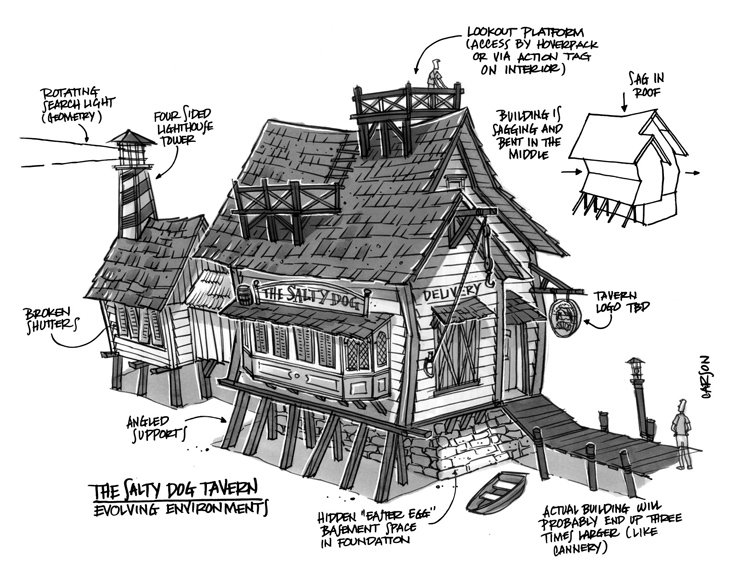 LOOKOUT PLATFORM
(ACCESS BY HOVERPACK
OR VIA ACTION TAG
ON INTERIOR)
SAG IN
ROOF
ROTATING
SEARCH LIGHT
(GEOMETRY)
FOUR SIDED
LIGHTHOUSE
TOWER
BUILDING IS
SAGGING AND
BENT IN THE
MIDDLE
THE SALTY DOG
DELIVERY
TAVERN
LOGO TBD
BROKEN
SHUTTERS
CARSON
ANGLED
SUPPORTS
THE SALTY DOG TAVERN
EVOLVING ENVIRONMENTS
HIDDEN "EASTER EGG"
BASEMENT SPACE
IN FOUNDATION
ACTUAL BUILDING WILL
PROBABLY END UP THREE
TIMES LARGER (LIKE
CANNERY)